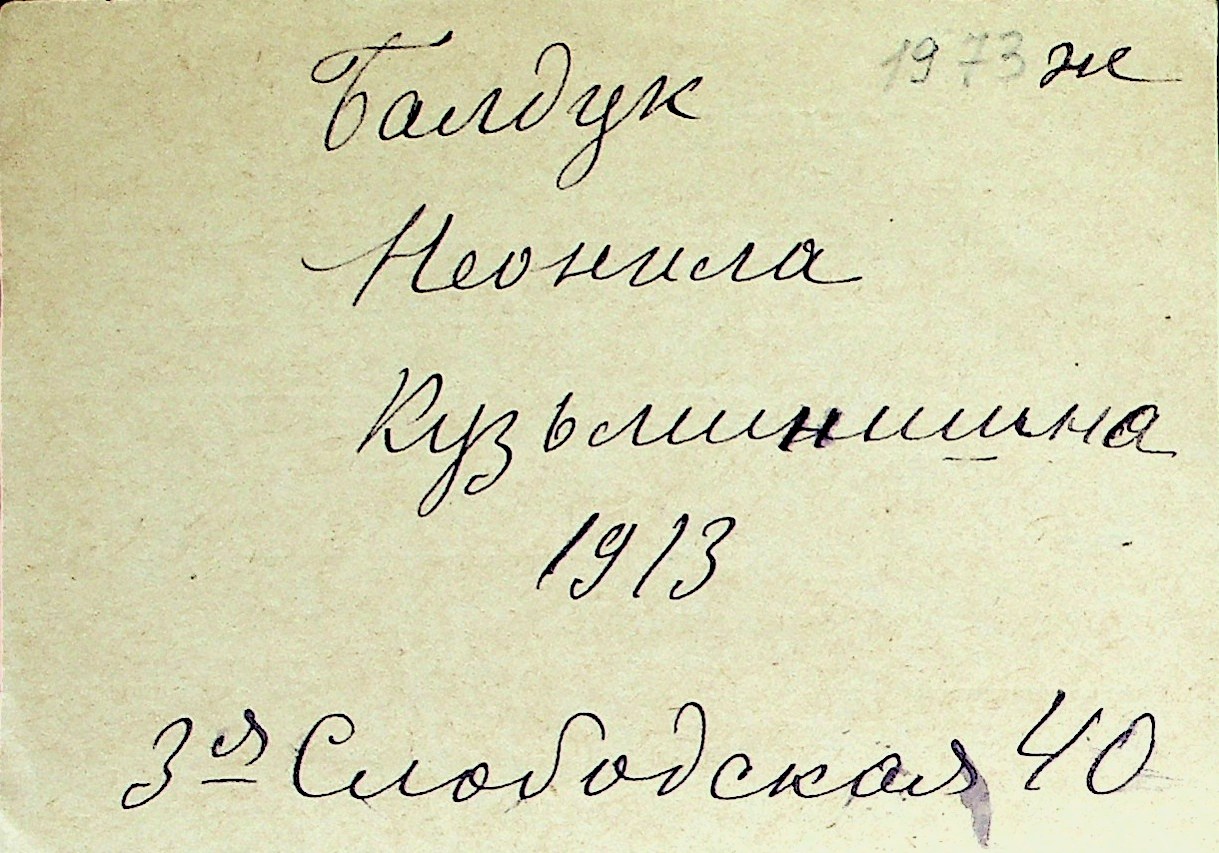 Балдук 1973 ж
Неонила
Кузьминишна
1913
3я Слободская 40